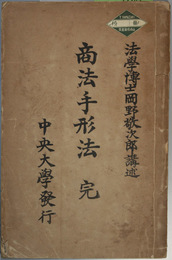 法學博士岡野敬次郎講述
商法手形法 完
中央大學發行